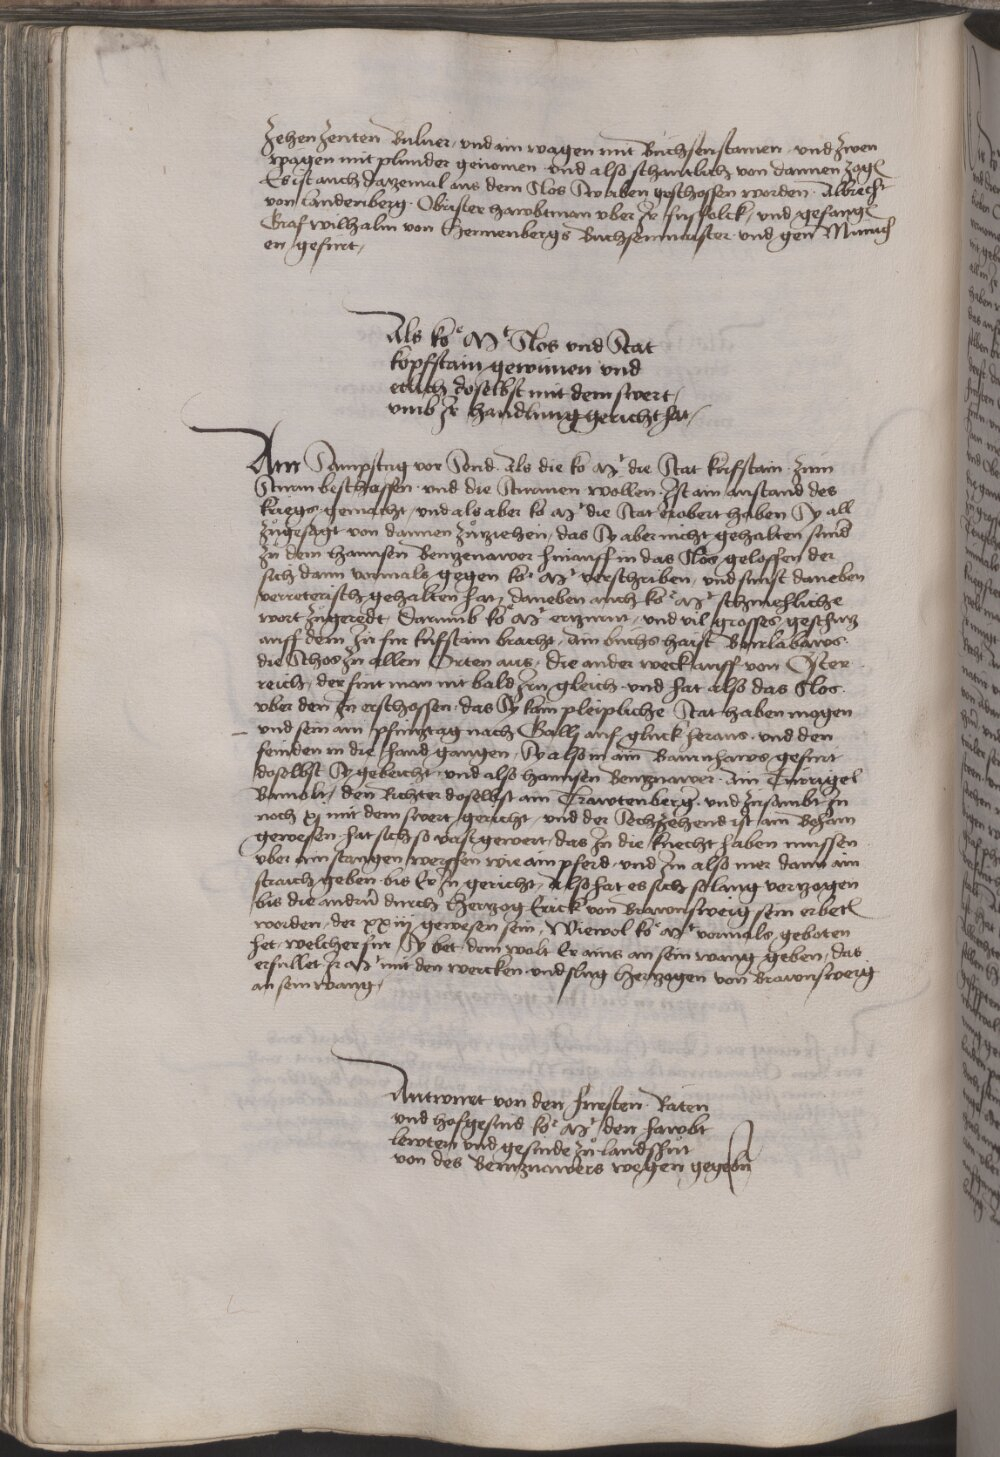 zehen zenten Buluer, vnd ain wagen mit Buchsenstainen, vnd zwen
wagen mit plunder genomen, vnd also schantlich von dannen zogn
Es ist auch datzemal aus dem Slos geschossen worden, Albrecht
von Landenberg, Obrister hawbtman vber Ir fusvolck, vnd gefangn
Graf Wilhalm von Hennenbergs Buchsenmaister, vnd gen Munich
en gefurt,
Als ko M.t Slos vnd Stat
kopfstain gewunen vnd
etlich doselbst mit dem swert,
vmb Ir handlung gericht hat,
Am Sampstag vor als die ko M.t die Stat kufstain zum
Sturm beschossen, vnd die sturmen wollen, Ist ain anstand des
kriegs gemacht, vnd als aber ko M.t die Stat erobert haben Sy all
zugesagt von dannen zuziehen, das Sy aber nicht gehalten sund
zu dem hannsen Bentzenawer hinauff in das Slos geloffen der
sich dann vormals gegen ko M.t verschriben, vnd sunst daneben
verreterisch gehalten hat, daneben auch ko M.t schmehliche
wort zugeredt Darumb ko M.t ertzurnt, vnd vil grosses geschutz
auff dem In fur kufstain bracht, Ain buchs haist Burlabaws
die schos zu allen Orten aus, die ander weckauff von Oster
reich, der fint man nit bald Irn gleich vnd hat also das Slos
vber den In erschossen, das Sy kain pleipliche Stat haben mogen
vnd sein am pfintztag nach Galli auf gluck heraus vnd den
feinden in die hand gangen, Sy also in ain Bawrnhaws gefurt
doselbst Sy gebeicht, vnd also hannsen Bentznawer, Ain
den Richter doselbst ain Trawtenberger, vnd zusambt In
noch xj mit dem swert gericht, vnd der Sechzehend ist ain Beham
gewesen hat sich so vast gewert, das In die knecht haben mussen
vber ain strangen werffen wie ain pferd vnd Im also mer dann ain
straich geben bis Er In gericht, Also hat es sich so lang vertzogen
bis die andrn durch Hertzog Erick von Brawnsweig sein erbetn
worden, der xxiij gewesen sein, Wiewol ko M.t vormals geboten
het welcher fur Sy bet dem wolt Er ains an sein wang geben, das
erfullet Ir M.t mit den wercken vnd slug Hertzogen von Brawnsweig
an sein wang,
Antwurt von den fursten, Räten
vnd hofgesind ko M.t den hawbt
lewten vnd gesinde zu landshut
von des Bentznawers wegen gegebn